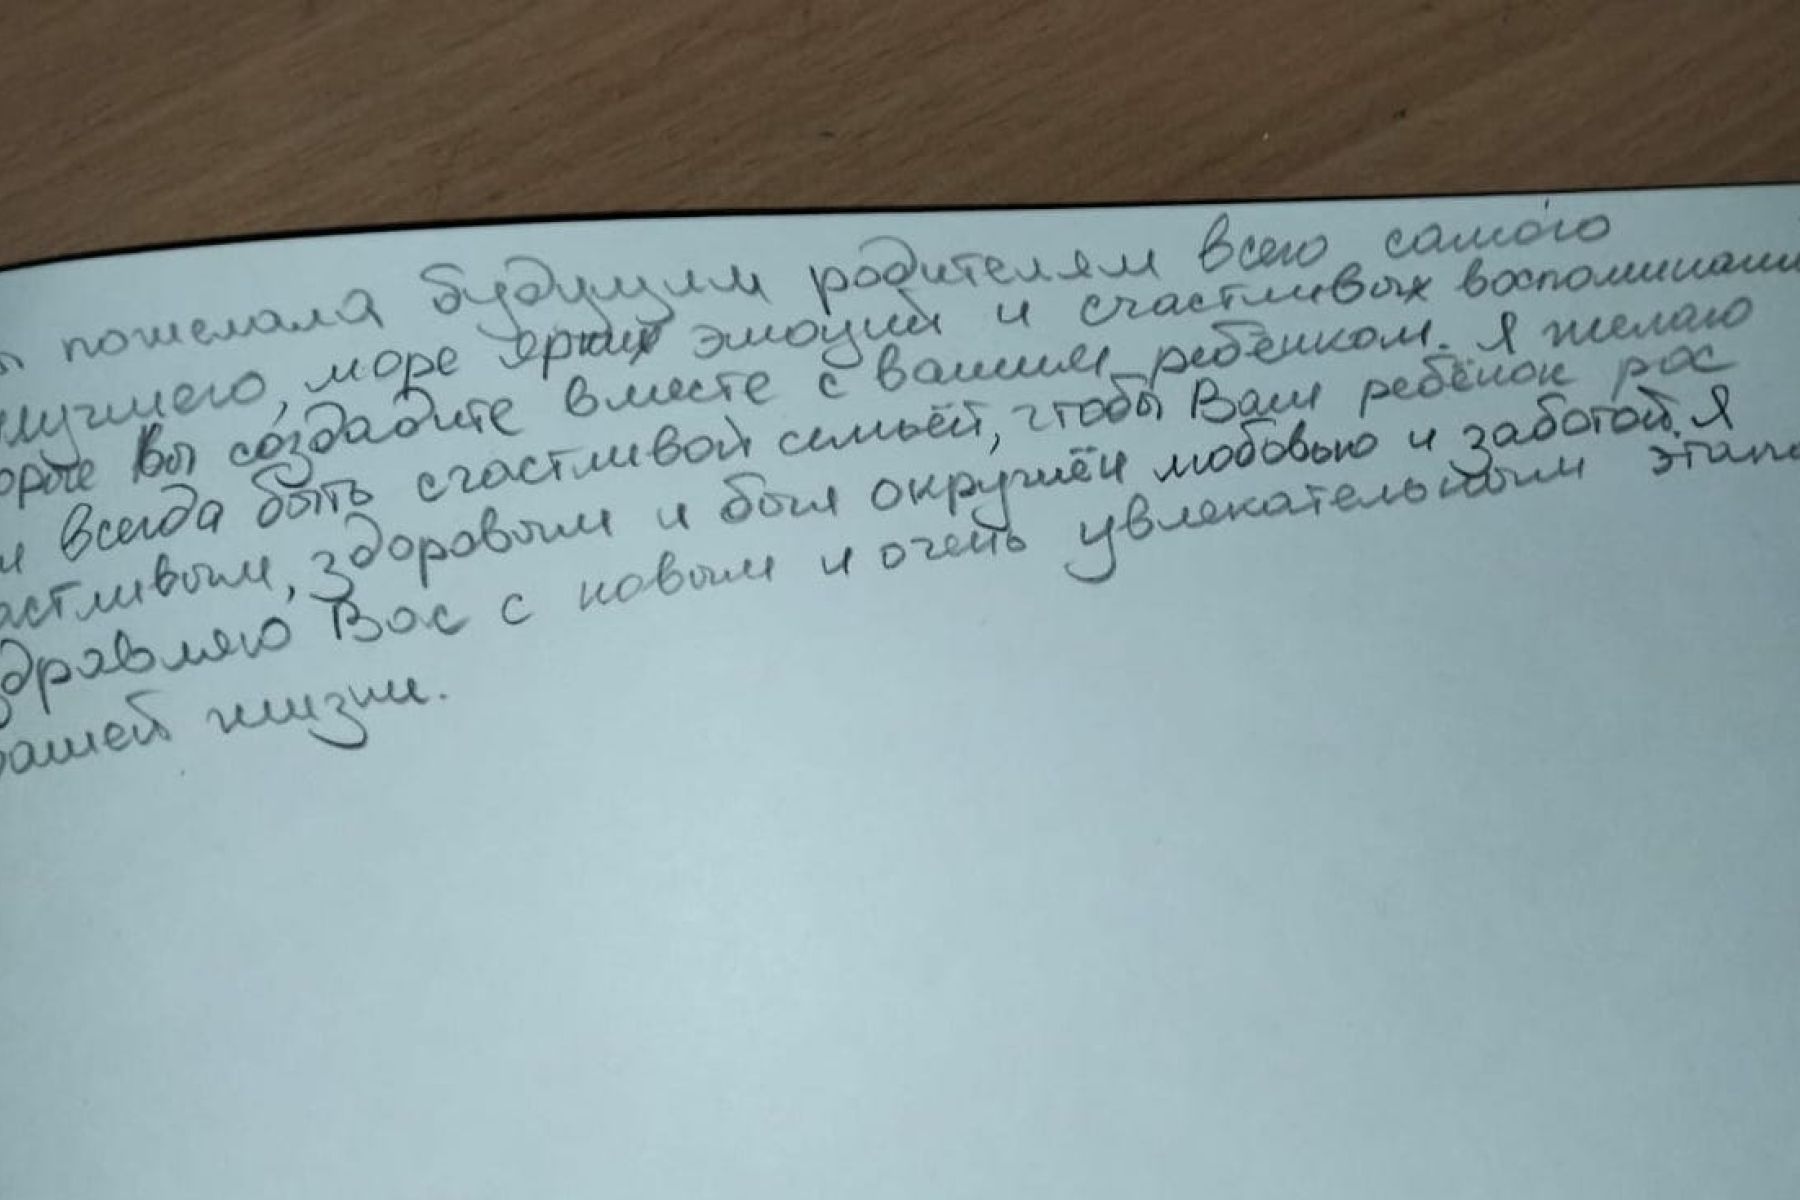 ы пожелала будущим родителям всего самого
лучшего, море ярких эмоций и счастливых воспоминани
орые Вы создадите вместе с вашим ребёнком. Я желаю
м всегда быть счастливой семьёй, чтобы Ваш ребёнок рос
астливым, здоровым и был окружён любовью и заботой. Я
здравляю Вас с новым и очень увлекательным этапо
вашей жизни.